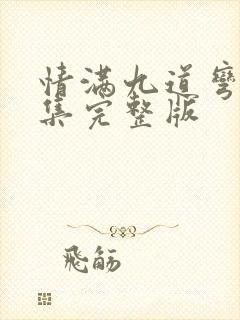 情满九道弯
集完整版
飛觞